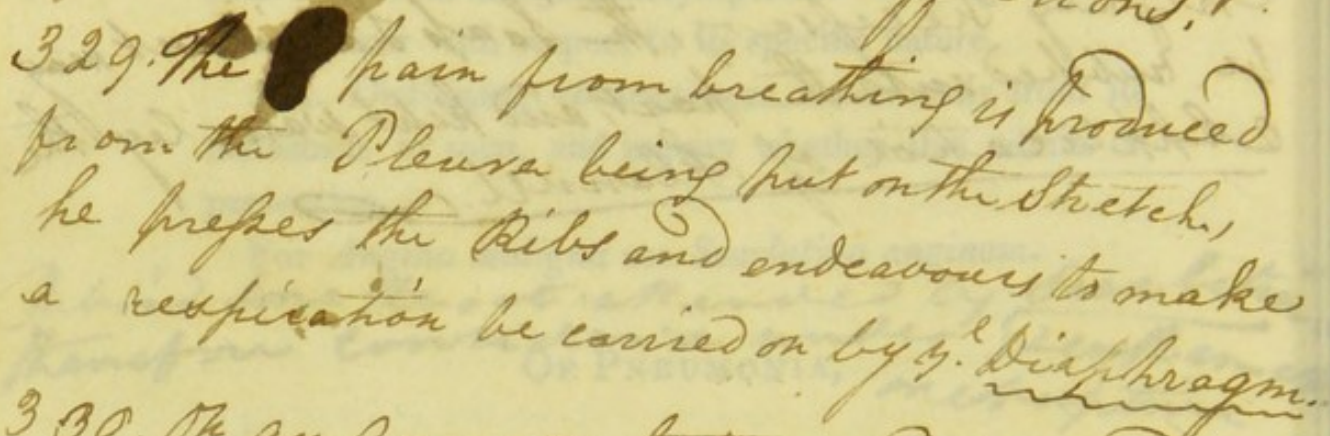 329. The pain from breathing is produced
from the Pleura being put on the Stretch,
he presses the Ribs and endeavours to make
a respiration be carried on by ye. Diaphragm.